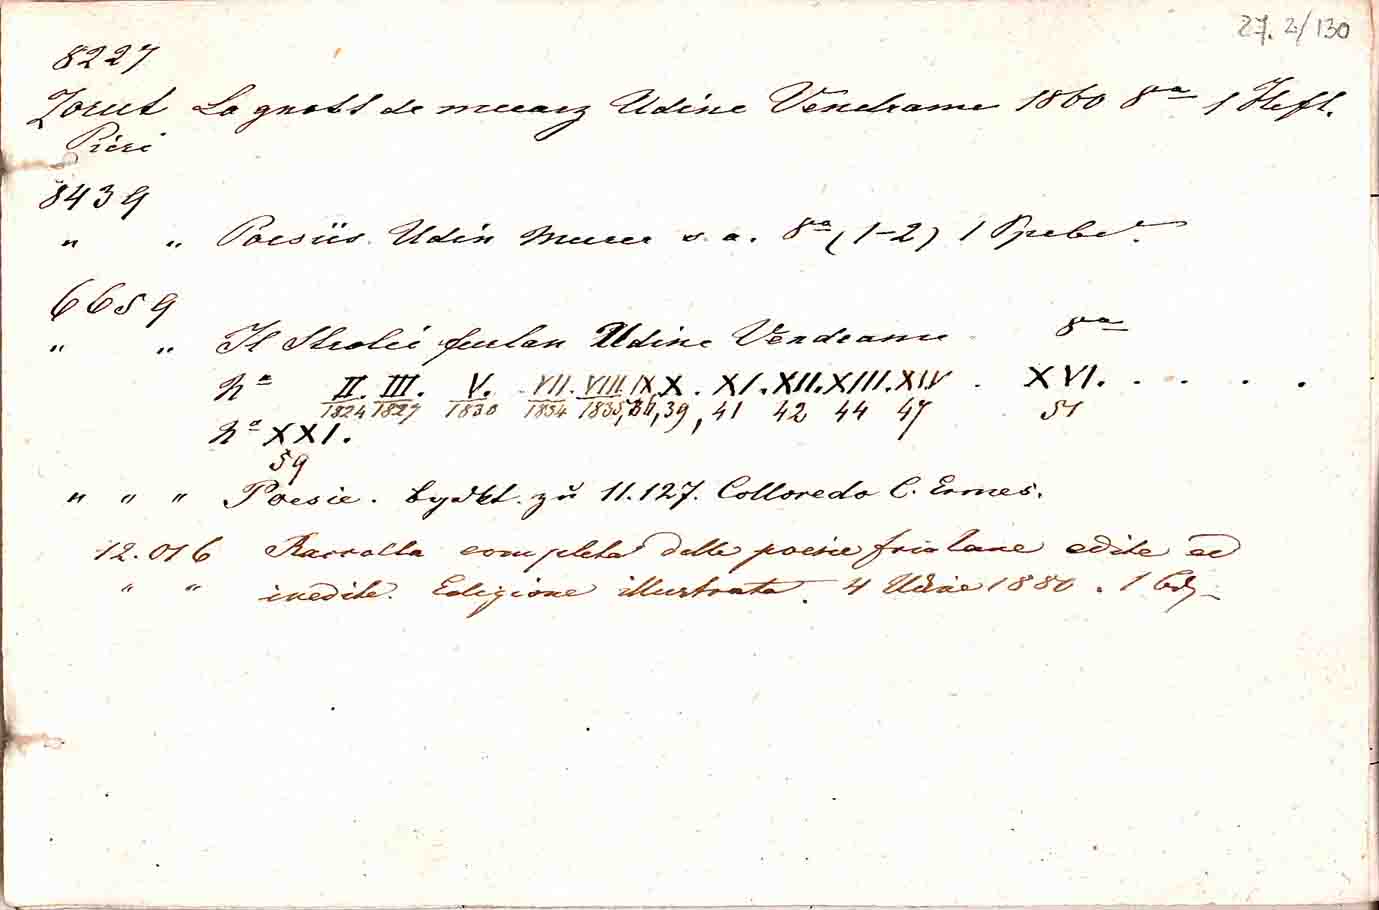 27. 2/130
8227
Zorut La gnott de muarz Udine Vendrame 1860 8va 1 Heft.
Pieri
8439
" " Poesiis. Udin Murer s. a. 8va (1-2) 1 Ppebd.
6659
" " Il Strolic furlan Udine Vendrame 8va
No II. III. V. VII. VIII. IX. X. XI. XII. XIII. XIV . XVI. . . . .
1824 1827 1830 1834 1835, 36, 39, 41 42 44 47 51
No XXI.
59
" " " Poesie. zu 11.127. Colloredo C. Ermes.
12.016 Raccolta completa delle poesie friulane edite ed
" " inedite. Edizione illustrata. 4 Udine 1880. 1 Bd